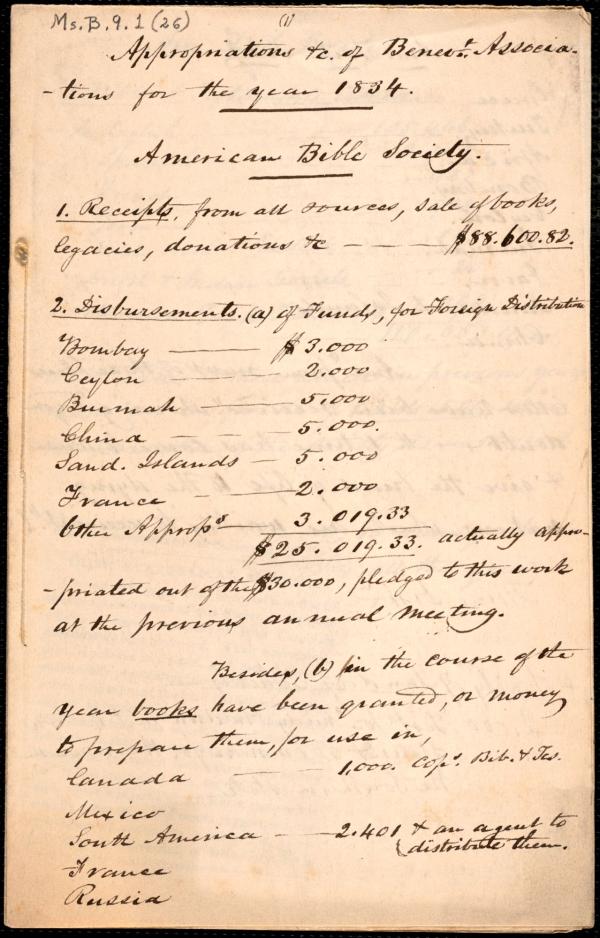 Ms. B. 9. 1 (26)
(1)
Appropriations &c. of Benevt. Associa-
-tions for the year 1834.
American Bible Society.
1. Receipts, from all sources, sale of books,
legacies, donations &c — — $88.600.82.
2. Disbursements. (a) of Funds, for Foreign Distribution
Bombay — $3.000
Ceylon — 2.000
Burmah — 5.000
China — 5.000.
Sand. Islands — 5.000
France — 2.000
Other Approps — 3.019.33
$25.019.33. actually appro-
-priated out of the $30.000, pledged to this work
at the previous annual meeting.
Besides, (b) in the course of the
year books have been granted, or money
to prepare them, for use in,
Canada — 1,000. Cops. Bib. & Tes.
Mexico
South America — 2.401 & an agent to
distribute them.
France
Russia